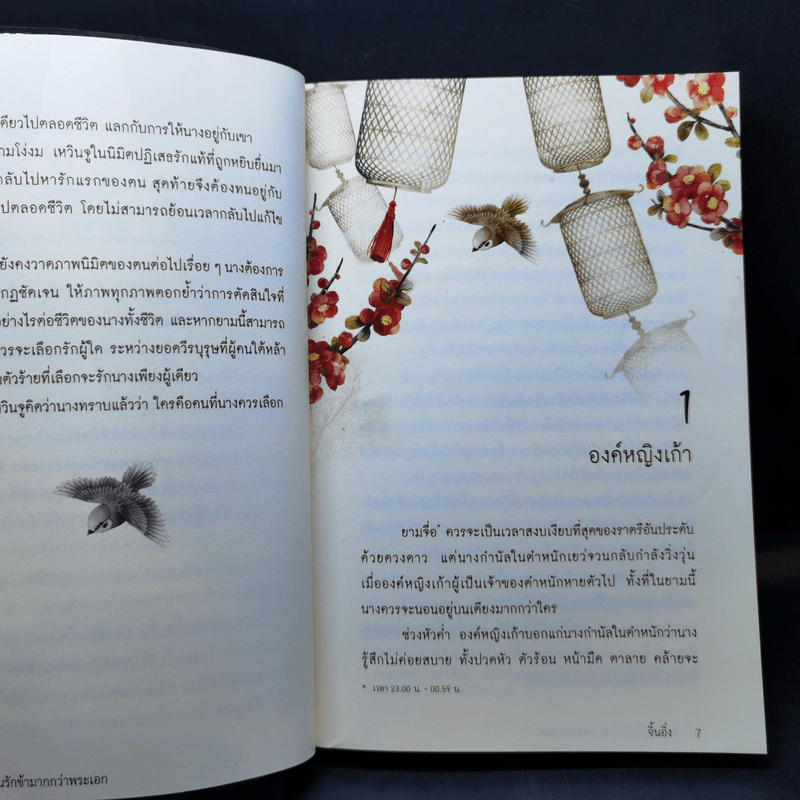 ดียวไปตลอดชีวิต แลกกับการให้นางอยู่กับเขา
ามโง่งม เหวินจูในนิมิตปฏิเสธรักแท้ที่ถูกหยิบยื่นมา
กลับไปหารักแรกของตน สุดท้ายจึงต้องทนอยู่กับ
ปตลอดชีวิต โดยไม่สามารถย้อนเวลากลับไปแก้ไข
ยังคงวาดภาพนิมิตของตนต่อไปเรื่อย ๆ นางต้องการ
กฏชัดเจน ให้ภาพทุกภาพตอกย้ำว่าการตัดสินใจที่
อย่างไรต่อชีวิตของนางทั้งชีวิต และหากยามนี้สามารถ
วรจะเลือกรักผู้ใด ระหว่างยอดวีรบุรุษที่ผู้คนใต้หล้า
ตัวร้ายที่เลือกจะรักนางเพียงผู้เดียว
หวินจูคิดว่านางทราบแล้วว่า ใครคือคนที่นางควรเลือก
นรักข้ามากกว่าพระเอก
1
องค์หญิงเก้า
ยามจื่อ* ควรจะเป็นเวลาสงบเงียบที่สุดของราตรีอันประดับ
ด้วยดวงดาว แต่นางกำนัลในตำหนักเยว่จวนกลับกำลังวิ่งวุ่น
เมื่อองค์หญิงเก้าผู้เป็นเจ้าของตำหนักหายตัวไป ทั้งที่ในยามนี้
นางควรจะนอนอยู่บนเตียงมากกว่าใคร
ช่วงหัวค่ำ องค์หญิงเก้าบอกแก่นางกำนัลในตำหนักว่านาง
รู้สึกไม่ค่อยสบาย ทั้งปวดหัว ตัวร้อน หน้ามืด ตาลาย คล้ายจะ
* เวลา 23.00 น. - 00.59 น.
จิ้นอิ๋ง 7